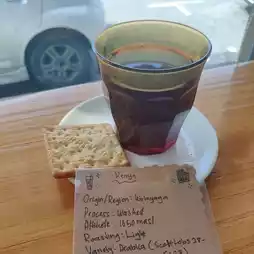 Kenya
Origin/Region: Kirinyaga
Process: Washed
Altitude: 1650 masl
Roasting: Light
Variety: Arabica (Scott Labs 28-